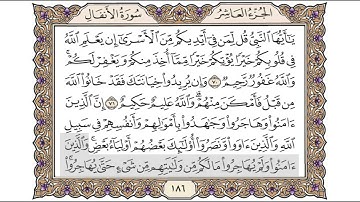 الجزء العاشر
سورة الأنفال
يَٰٓأَيُّهَا ٱلنَّبِيُّ قُل لِّمَن فِيٓ أَيْدِيكُم مِّنَ ٱلْأَسْرَىٰٓ إِن يَعْلَمِ ٱللَّهُ
فِي قُلُوبِكُمْ خَيْرًا يُؤْتِكُمْ خَيْرًا مِّمَّآ أُخِذَ مِنكُمْ وَيَغْفِرْ لَكُمْۗ
وَٱللَّهُ غَفُورٌ رَّحِيمٌ ٧٠ وَإِن يُرِيدُوا۟ خِيَانَتَكَ فَقَدْ خَانُوا۟ ٱللَّهَ
مِن قَبْلُ فَأَمْكَنَ مِنْهُمْۗ وَٱللَّهُ عَلِيمٌ حَكِيمٌ ٧١ إِنَّ ٱلَّذِينَ
ءَامَنُوا۟ وَهَاجَرُوا۟ وَجَٰهَدُوا۟ بِأَمْوَٰلِهِمْ وَأَنفُسِهِمْ فِي سَبِيلِ
ٱللَّهِ وَٱلَّذِينَ ءَاوَوا۟ وَّنَصَرُوٓا۟ أُو۟لَٰٓئِكَ بَعْضُهُمْ أَوْلِيَآءُ بَعْضٍۚ وَٱلَّذِينَ
ءَامَنُوا۟ وَلَمْ يُهَاجِرُوا۟ مَا لَكُم مِّن وَلَٰيَتِهِم مِّن شَيْءٍ حَتَّىٰ يُهَاجِرُوا۟ۚ
١٨٦